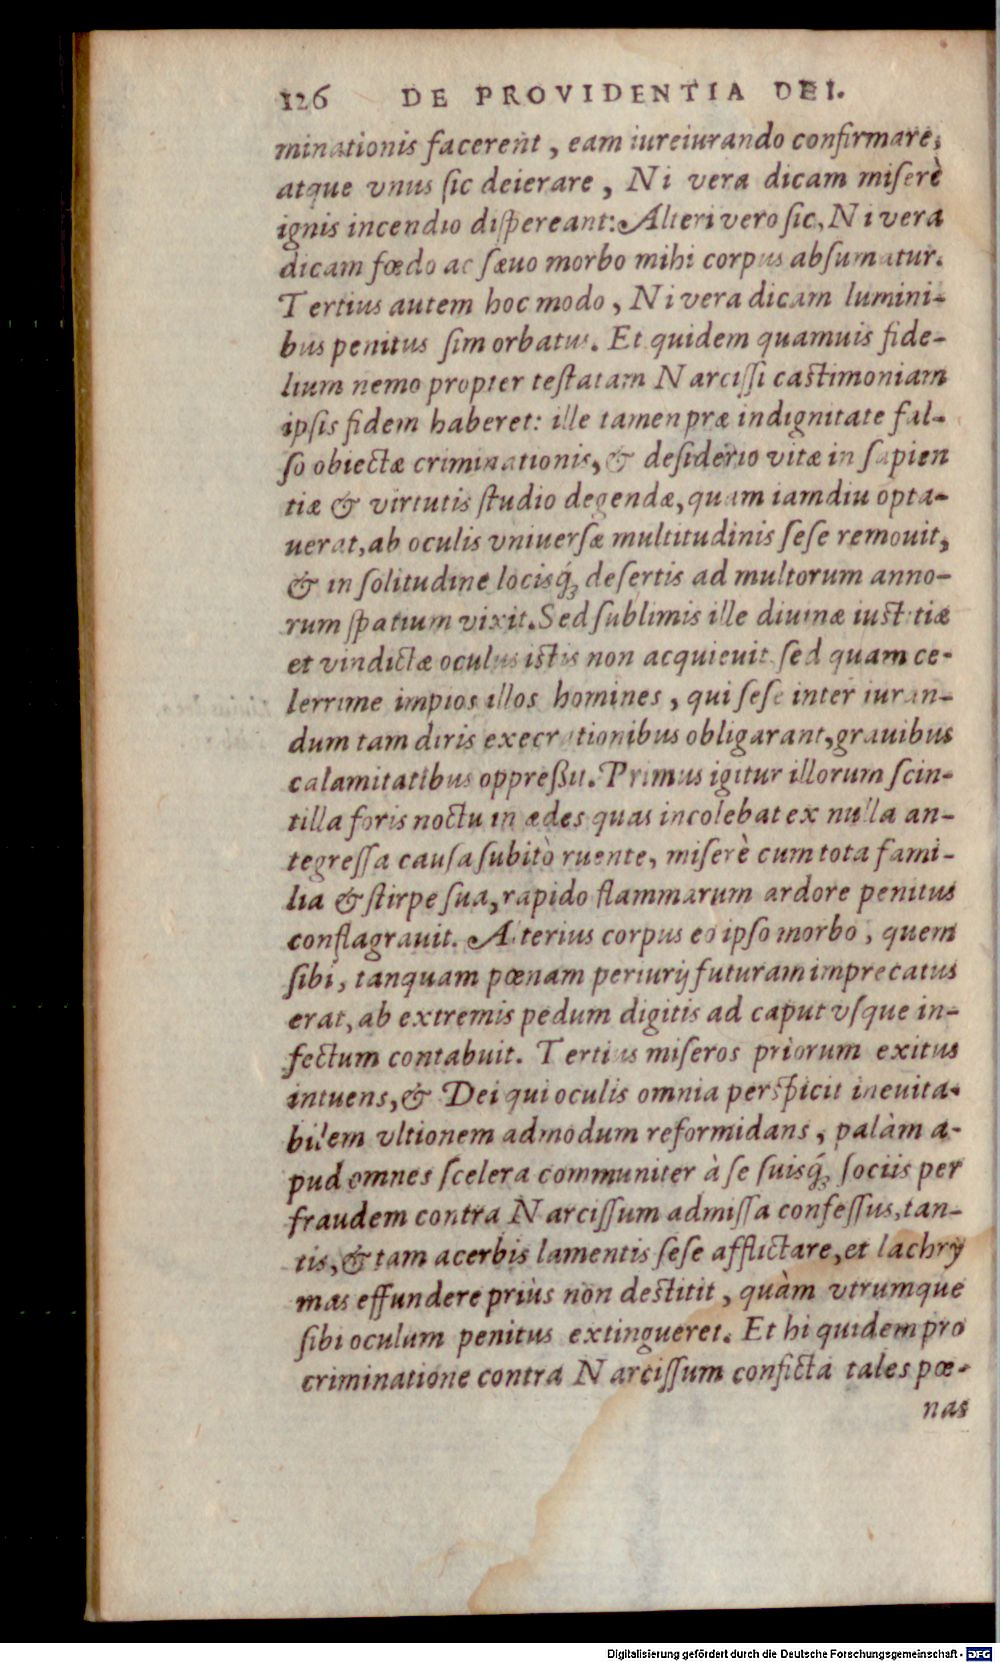 126 DE PROVIDENTIA DEI.
minationis facerent, eam iureiurando confirmare,
atque vnus sic deierare, Ni vera dicam miserè
ignis incendio dispereant: Alteri vero sic, Ni vera
dicam fœdo ac sæuo morbo mihi corpus absumatur.
Tertius autem hoc modo, Ni vera dicam lumini-
bus penitus sim orbatus. Et quidem quamuis fide-
lium nemo propter testatam Narcissi castimoniam
ipsis fidem haberet: ille tamen præ indignitate fal-
so obiectæ criminationis, & desiderio vitæ in sapien
tiæ & virtutis studio degendæ, quam iamdiu opta-
uerat, ab oculis vniuersæ multitudinis sese remouit,
& in solitudine locisq́ꝫ desertis ad multorum anno-
rum spatium vixit. Sed sublimis ille diuinæ iustitiæ
et vindictæ oculus istis non acquieuit sed quam ce-
lerrime impios illos homines, qui sese inter iuran-
dum tam diris execrationibus obligarant, grauibus
calamitatibus oppreßit. Primus igitur illorum scin-
tilla foris noctu in ædes quas incolebat ex nulla an-
tegressa causa subitò ruente, miserè cum tota fami-
lia & stirpe sua, rapido flammarum ardore penitus
conflagrauit. Alterius corpus eo ipso morbo, quem
sibi, tanquam pœnam periurij futuram imprecatus
erat, ab extremis pedum digitis ad caput vsque in-
fectum contabuit. Tertius miseros priorum exitus
intuens, & Dei qui oculis omnia perspicit ineuita-
bilem vltionem admodum reformidans, palàm a-
pud omnes scelera communiter à se suisq́ꝫ sociis per
fraudem contra Narcissum admissa confessus, tan-
tis, & tam acerbis lamentis sese afflictare, et lachry
mas effundere priùs non destitit, quàm vtrumque
sibi oculum penitus extingueret. Et hi quidem pro
criminatione contra Narcissum conficta tales pœ-
nas
Digitalisierung gefördert durch die Deutsche Forschungsgemeinschaft - DFG